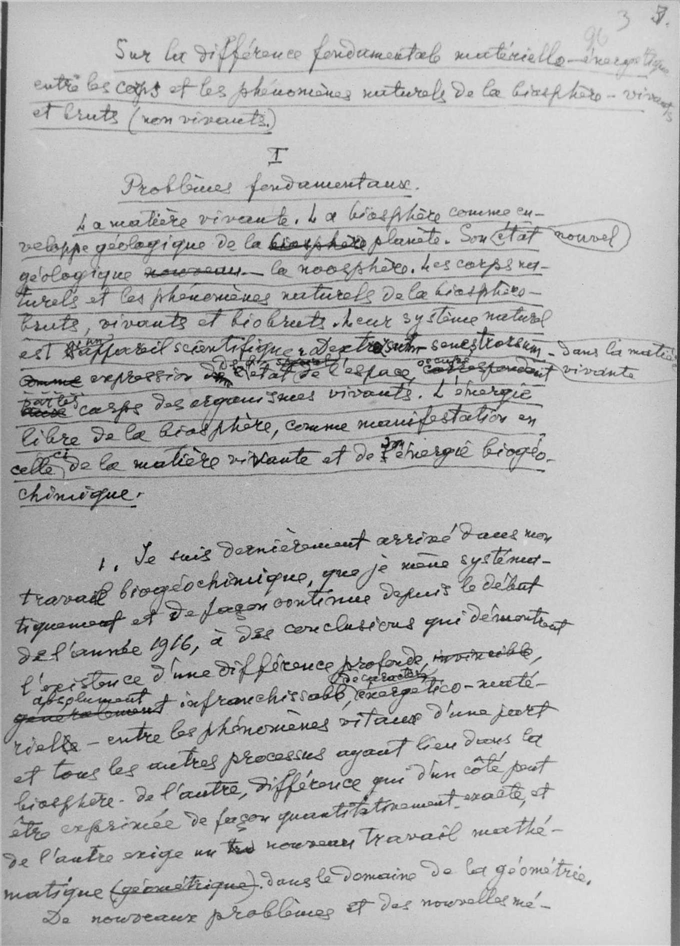 96 3 7.
Sur la différence fondamentale matériello-énergetique
entre les corps et les phénomènes naturels de la biosphère – vivants
et bruts (non vivants.)
I
Problèmes fondamentaux.
La matière vivante. La biosphère comme en-
veloppe géologique de la biosphère planète. Son état nouvel
géologique nouveau – la noosphère. Les corps na-
turels et les phénomènes naturels de la biosphère-
bruts, vivants et biobruts. Leur système naturel
est l'appareil scientifique. Dextrsum – senestrorsum – dans la matière
comme expression de l'état de l'espace, correspondant vivante
parles corps des organismes vivants. L'énergie
libre de la biosphère, comme manifestation en
celle ci de la matière vivante et de son énergie biogéo-
chimique.
1. Je suis dernièrement arrivé dans mon
travail biogéochimique, que je mène systéma-
tiquement et de façon continue depuis le début
de l'année 1916, à des conclusions qui démontrent
l'existence d'une différence profonde, invincible,
de caractère
absolument
generalement infranchissable, énergetico-maté-
rielle – entre les phénomènes vitaux d'une part
et tous les autres processus ayant lieu dans la
biosphère – de l'autre, différence qui d'un côté peut
être exprimée de façon quantitativement-exacte, et
de l'autre exige un nouveau travail mathé-
matique (géométrique). dans le domaine de la géométrie.
De nouveaux problèmes et des nouvelles mé-